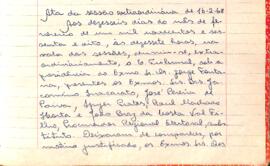 Ata da sessão extraordinária de 16-2-68
Aos dezesseis dias do mês de
fevereiro de um mil novecentos e ses-
senta e oito, às dezessete horas, na
sala das sessões, reuniu-se, extra-
ordinariamente, o Tribunal, sob a
presidência do Exmo Sr. Dr. Jorge Fontana,
presentes os Exmos. Srs. Drs.
José Pereira de
Paiva, Prates, Raul Machado
Horta e João Braz da Costa Val Fi-
lho, Procurador Regional Eleitoral subs-
tituto. Deixaram de comparecer, por
motivo justificado, os Exmos. Srs. Des